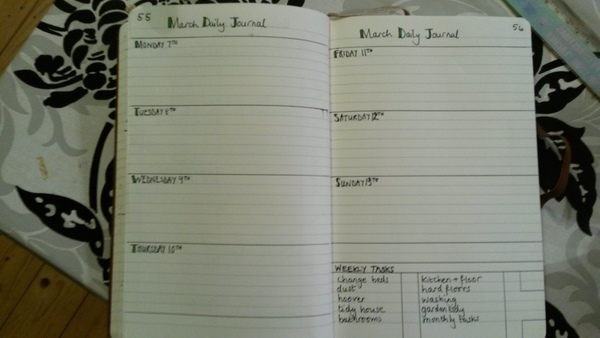 55
March Daily Journal
MONDAY 7TH
TUESDAY 8TH
WEDNESDAY 9TH
THURSDAY 10TH
56
March Daily Journal
FRIDAY 11TH
SATURDAY 12TH
SUNDAY 13TH
WEEKLY TASKS
change beds
dust
hoover
tidy house
bathrooms
kitchen + floor
hard floors
washing
garden tidy
monthly tasks